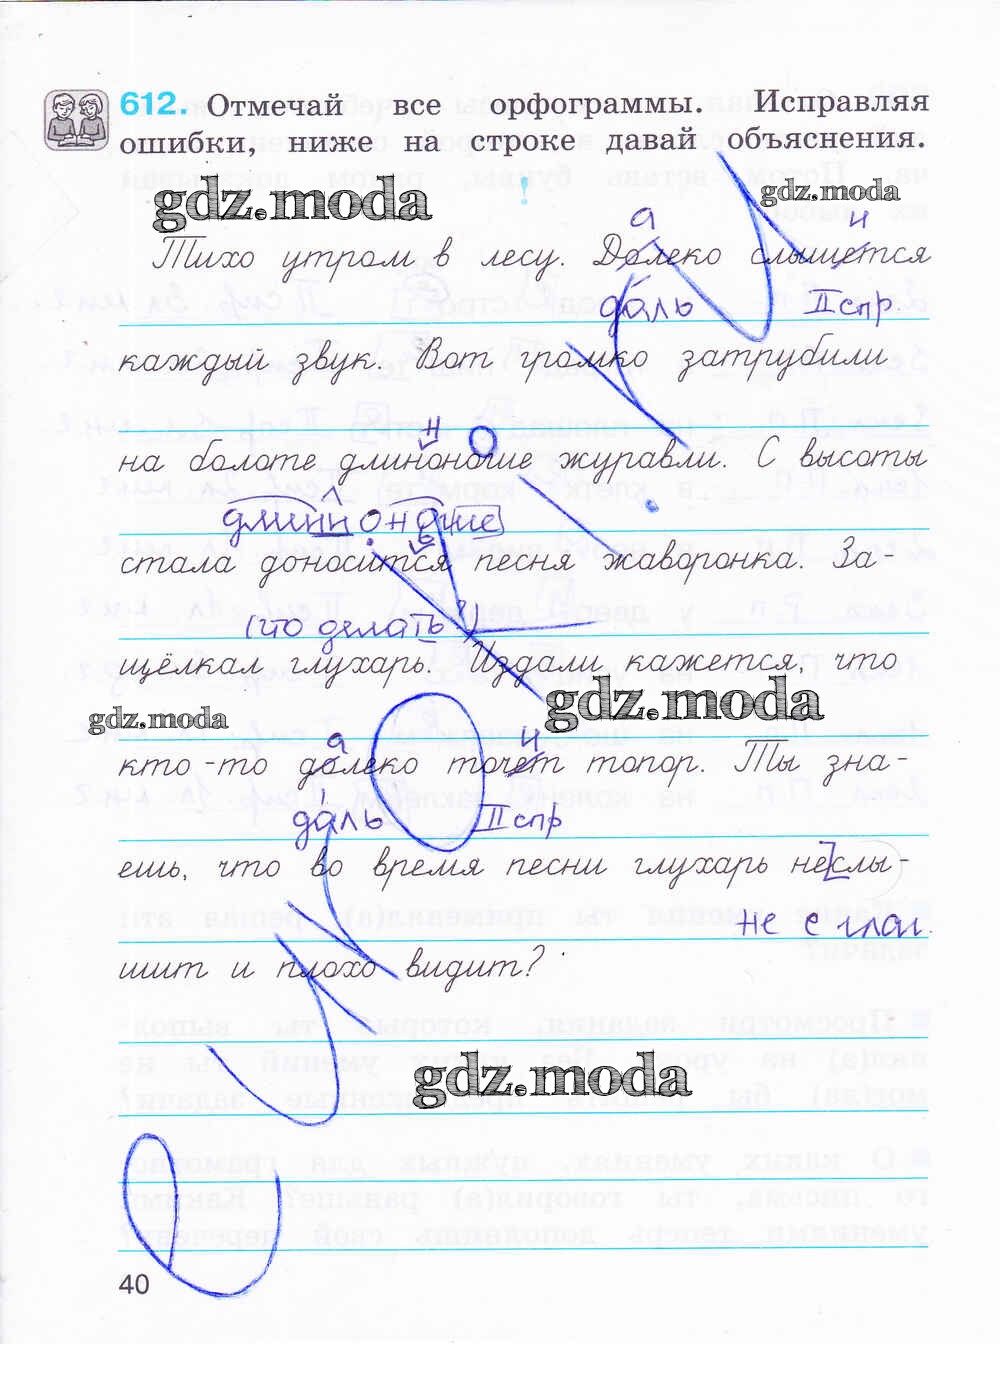 612. Отмечай все орфограммы. Исправляя
ошибки, ниже на строке давай объяснения.
gdz.moda gdz.moda
а и
Тихо утром в лесу. Долеко слышется
даль II спр.
каждый звук. Вот громко затрубили
н
на болоте длинономие журавли. С высоты
длинноногие
ь
стала доносится песня жаворонка. За-
(что делать?)
щёлкал глухарь. Издали кажется, что
gdz.moda
gdz.moda
а и
кто-то долеко точет топор. Ты зна-
даль II спр
ешь, что во время песни глухарь неслы-
не с глаг.
шит и плохо видит?
gdz.moda
40